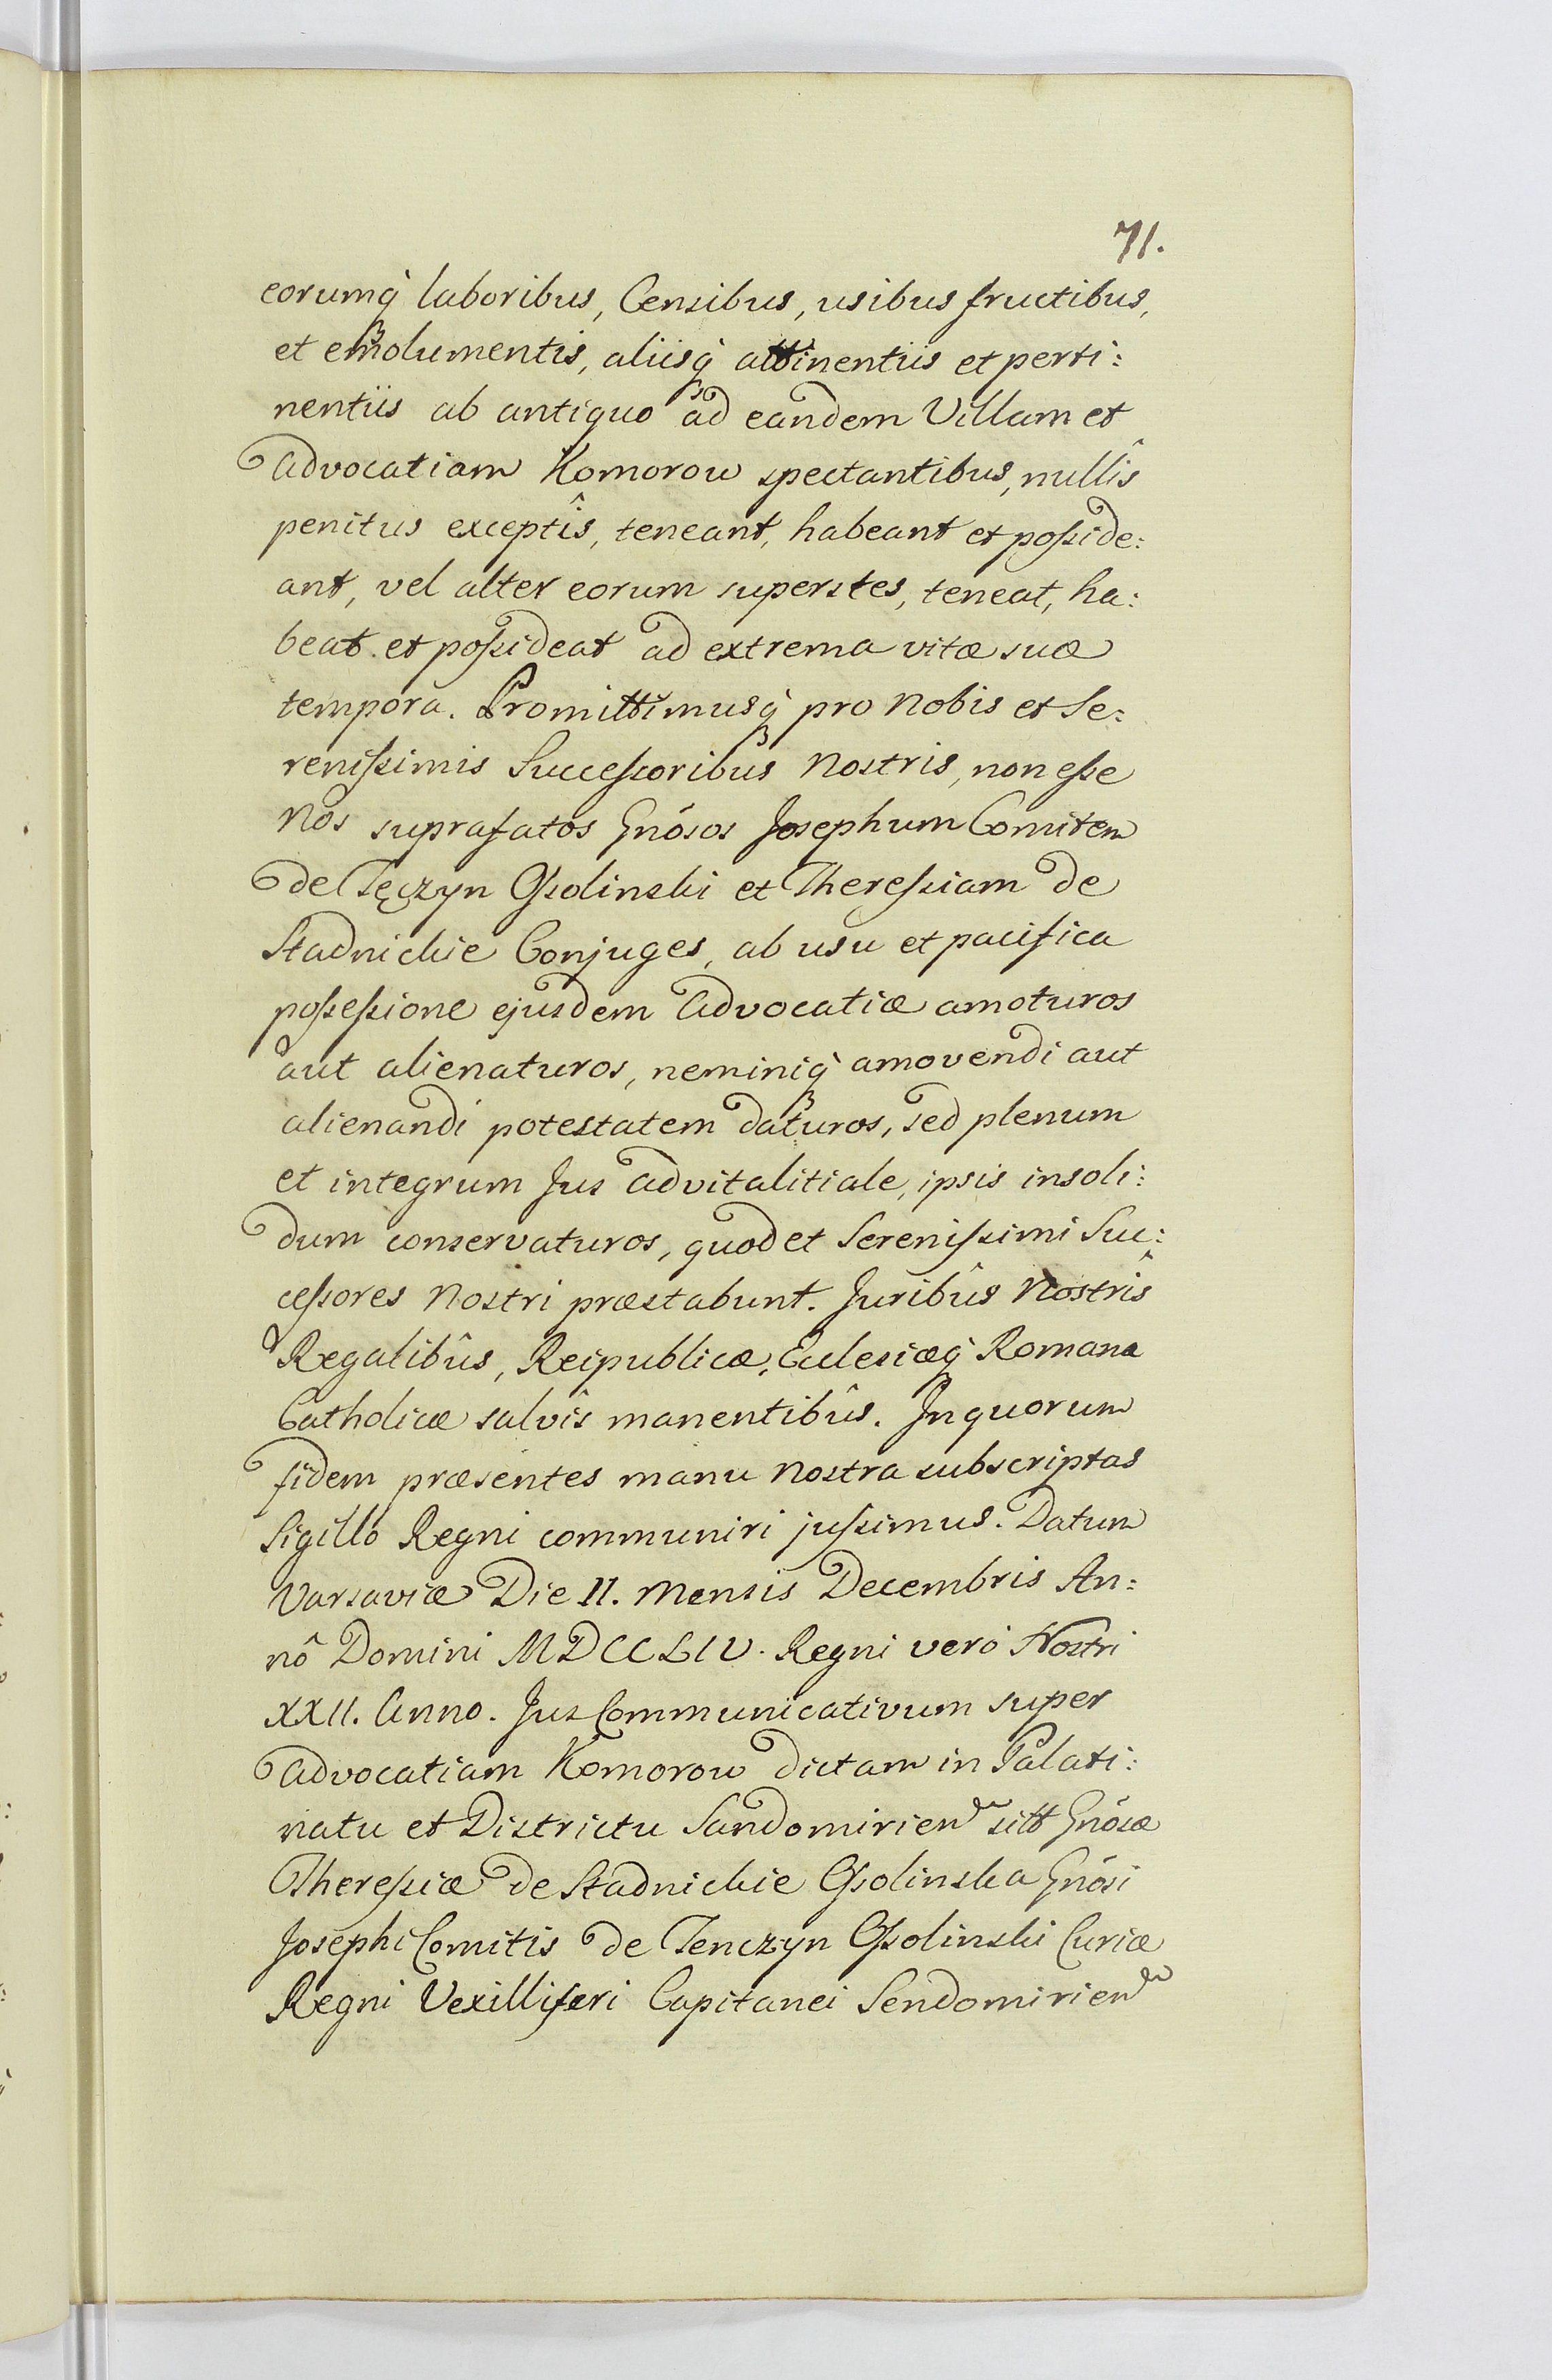 71.
eorumq̀ laboribus, Censibus, usibus fructibus,
et emolumentis, aliisq̀ attinentiis et perti:
nentiis ab antiquo ad eandem Villam et
Advocatiam Komorow spectantibus, nullîs
penitus exceptîs, teneant, habeant et poſside:
ant, vel alter eorum superstes, teneat, ha:
beat et poſsideat ad extrema vitæ suæ
tempora. Promittimusq̀ pro Nobis et Se:
reniſsimis Succeſsoribus Nostris, non eſse
Nos suprafatos Gnósos Josephum Comitem
de Tęczyn Oſsolinski et Thereſsiam de
Stadnickie Conjuges, ab usu et pacifica
poſseſsione ejusdem Advocatiæ amoturos
aut alienaturos, neminiq̀ amovendi aut
alienandi potestatem daturos, sed plenum
et integrum Jus advitalitiale, ipsis insoli:
dum conservaturos, quod et Sereniſsimi Suc:
ceſsores Nostri præstabunt. Juribûs Nostrîs
Regalibûs, Reipublicæ, Eclesiæq̀ Romana
Catholicæ salvîs manentibûs. In quorum
fidem præsentes manu Nostra subscriptas
Sigillo Regni communiri juſsimus. Datum
Varsaviæ Die 11. Mensis Decembris An:
nô Domini MDCCLIV. Regni verò Nostri
XXII. Anno. Jus Communicativum super
Advocatiam Komorow dictam in Palati:
natu et Districtu Sandomirien sitt Gnósæ
Thereſsiæ de Stadnickie Oſsolinska Gnósi
Josephi Comitis de Tenczyn Oſsolinski Curiæ
Regni Vexilliferi Capitanei Sendomirien